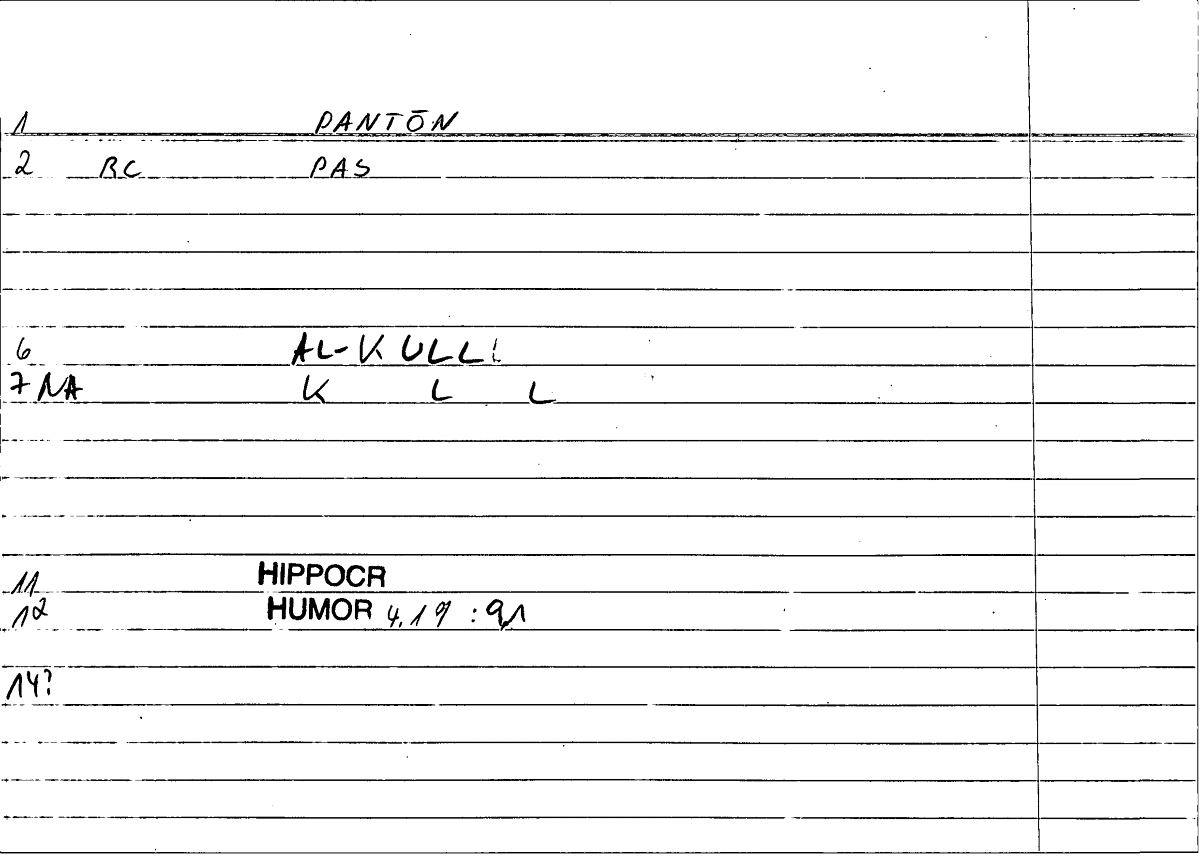 1 PANTŌN
2 RC PAS
6 AL-KULLI
7 NA K L L
11 HIPPOCR
12 HUMOR 4.19 : 9,1
14?